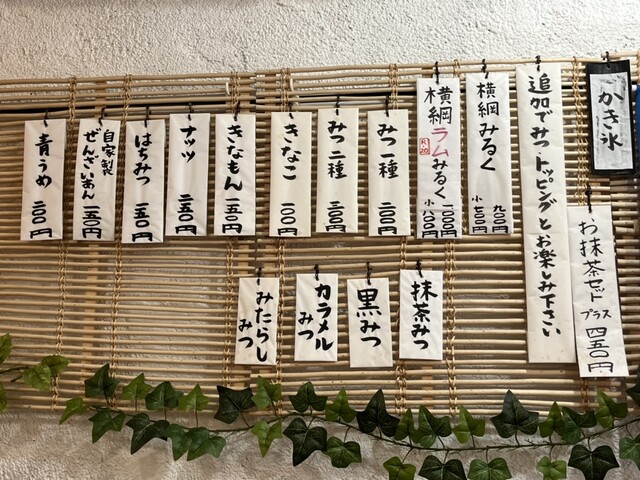 かき氷
お抹茶セット
プラス 四五〇円
追加でみつ・トッピングとお楽しみ下さい
横綱みるく
九〇〇円
小 七〇〇円
横綱ラムみるく
R-20
一〇〇〇円
小 八〇〇円
みつ一種
二〇〇円
みつ二種
三〇〇円
きなこ
一〇〇円
きなもん
一五〇円
ナッツ
二五〇円
はちみつ
一五〇円
自家製
ぜんざいあん
二五〇円
青うめ
二〇〇円
抹茶みつ
黒みつ
カラメル
みつ
みたらし
みつ